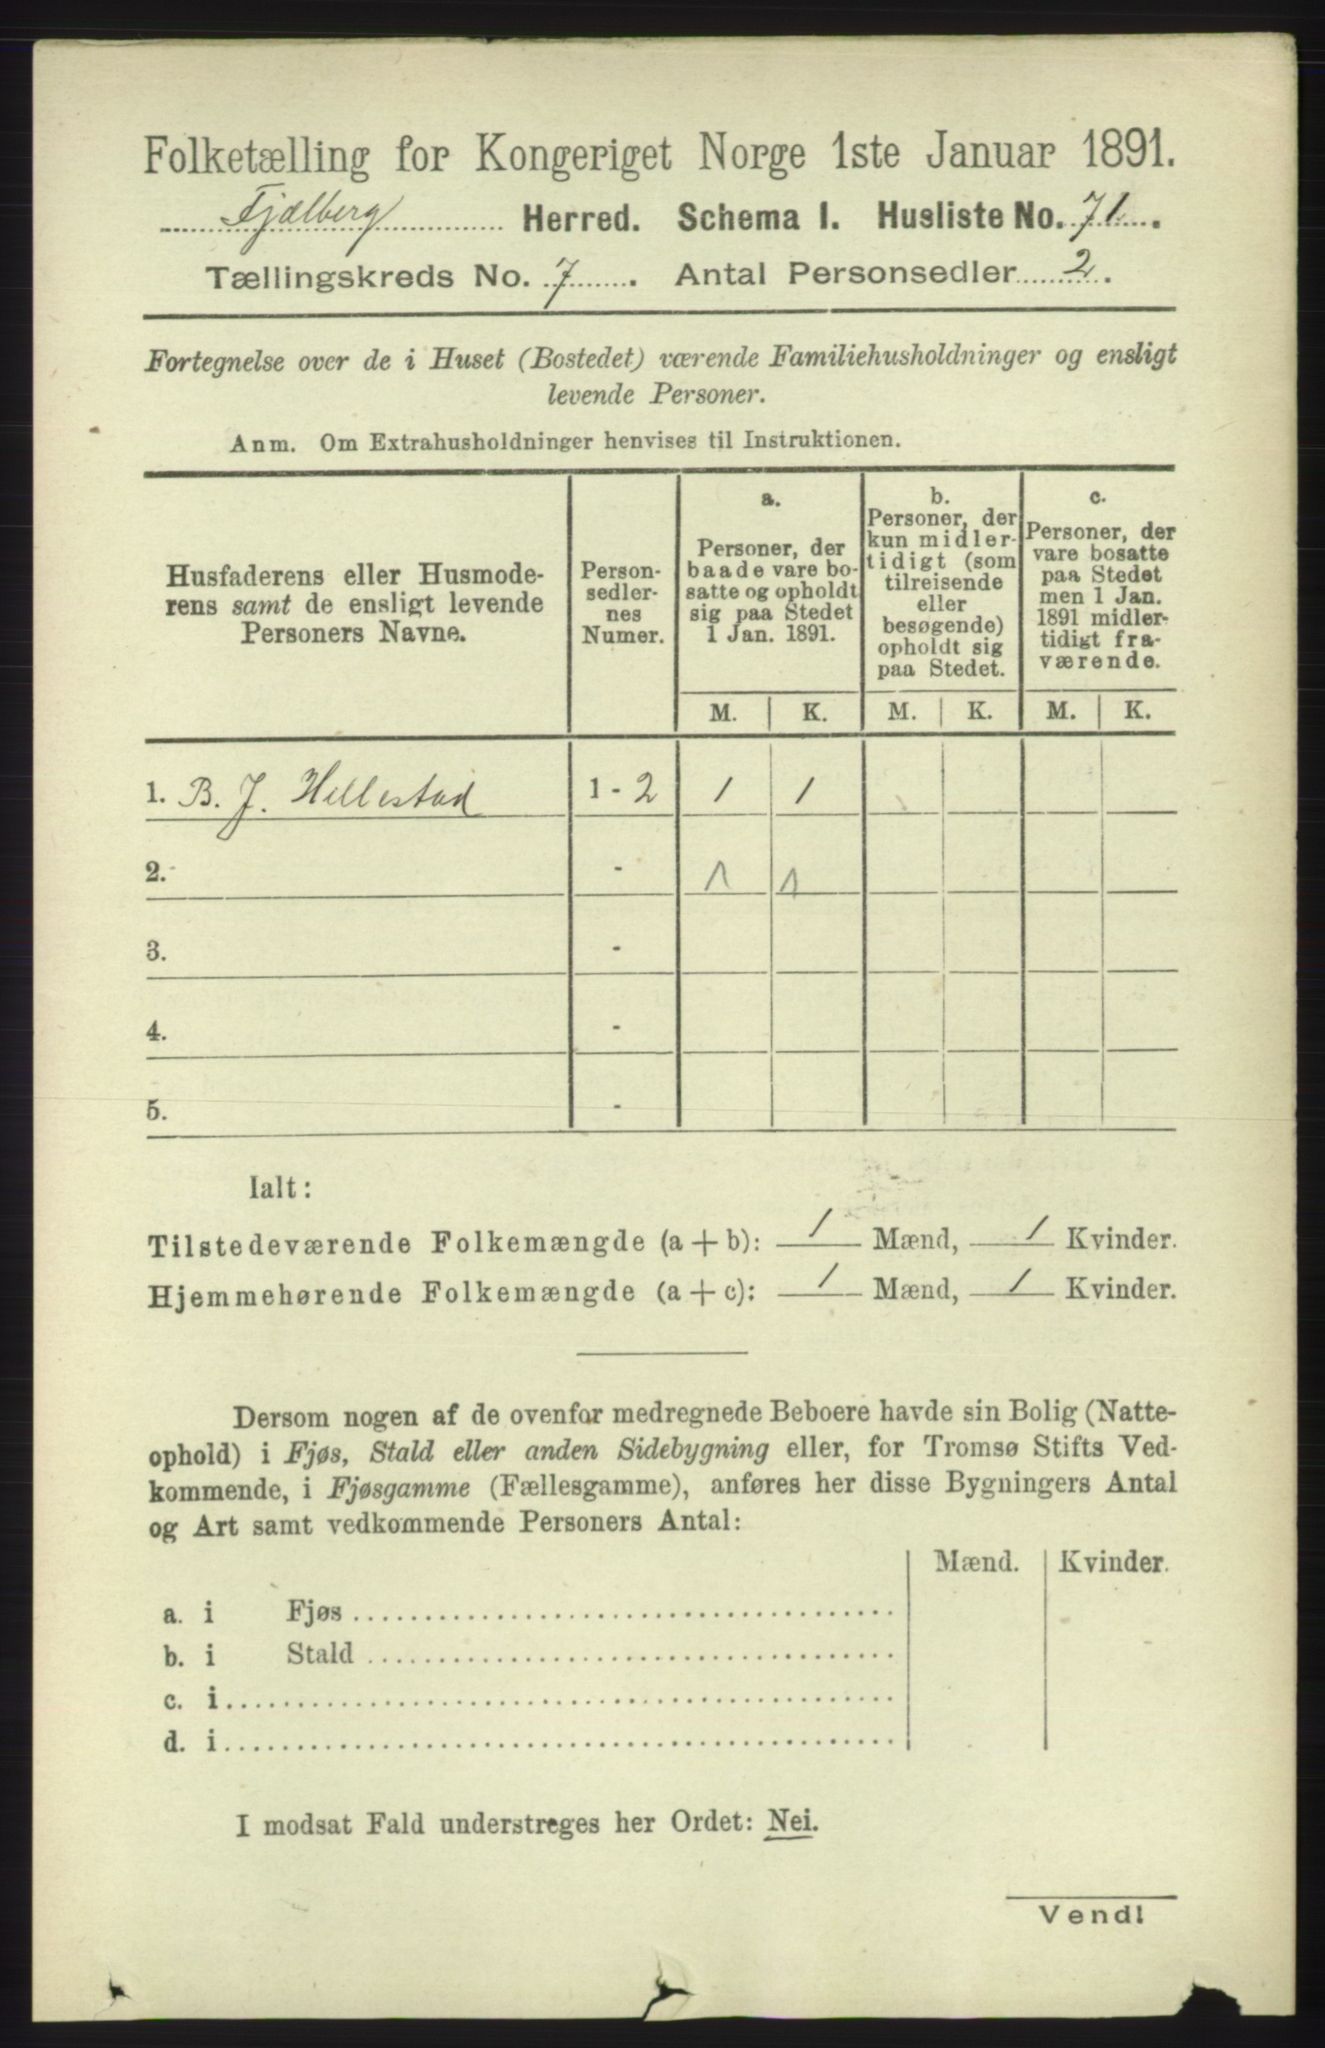 Folketælling for Kongeriget Norge 1ste Januar 1891.
Fjælberg Herred. Schema I. Husliste No. 71.
Tællingskreds No. 7. Antal Personsedler 2.
Fortegnelse over de i Huset (Bostedet) værende Familiehusholdninger og ensligt
levende Personer.
Anm. Om Extrahusholdninger henvises til Instruktionen.
Husfaderens eller Husmode-
rens samt de ensligt levende
Personers Navne.
Person-
sedler-
nes
Numer.
a.
Personer, der
baade vare bo-
satte og opholdt
sig paa Stedet
1 Jan. 1891.
b.
Personer, der
kun midler-
tidigt (som
tilreisende
eller
besøgende)
opholdt sig
paa Stedet.
c.
Personer, der
vare bosatte
paa Stedet
men 1 Jan.
1891 midler-
tidigt fra-
værende.
M. K. M. K. M. K.
1. B. J. Hellestad 1 - 2 1 1
2. - 1 1
3. -
4. -
5. -
Ialt:
Tilstedeværende Folkemængde (a + b): 1 Mænd, 1 Kvinder.
Hjemmehørende Folkemængde (a + c): 1 Mænd, 1 Kvinder.
Dersom nogen af de ovenfor medregnede Beboere havde sin Bolig (Natte-
ophold) i Fjøs, Stald eller anden Sidebygning eller, for Tromsø Stifts Ved-
kommende, i Fjøsgamme (Fællesgamme), anføres her disse Bygningers Antal
og Art samt vedkommende Personers Antal:
Mænd. Kvinder.
a. i Fjøs
b. i Stald
c. i
d. i
I modsat Fald understreges her Ordet: Nei.
Vend!